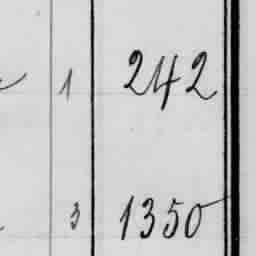 1 242
3 1350